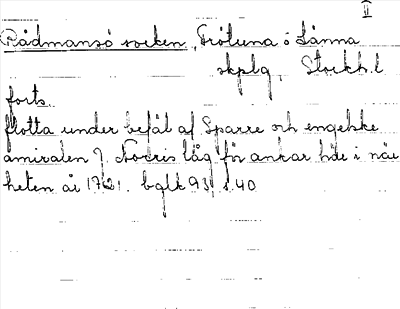 II
Rådmansö socken, Frötuna o Länna
skplg, Stockh. l
forts.
flotta under befäl af Sparre och engelske
amiralen J. Norris låg för ankar här i när
heten år 1721. bglk 93, s. 40